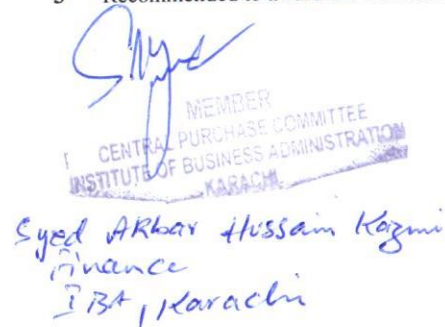 Recommended to
MEMBER
CENTRAL PURCHASE COMMITTEE
INSTITUTE OF BUSINESS ADMINISTRATION
KARACHI
Syed Akbar Hussain Kazmi
Finance
IBA, Karachi